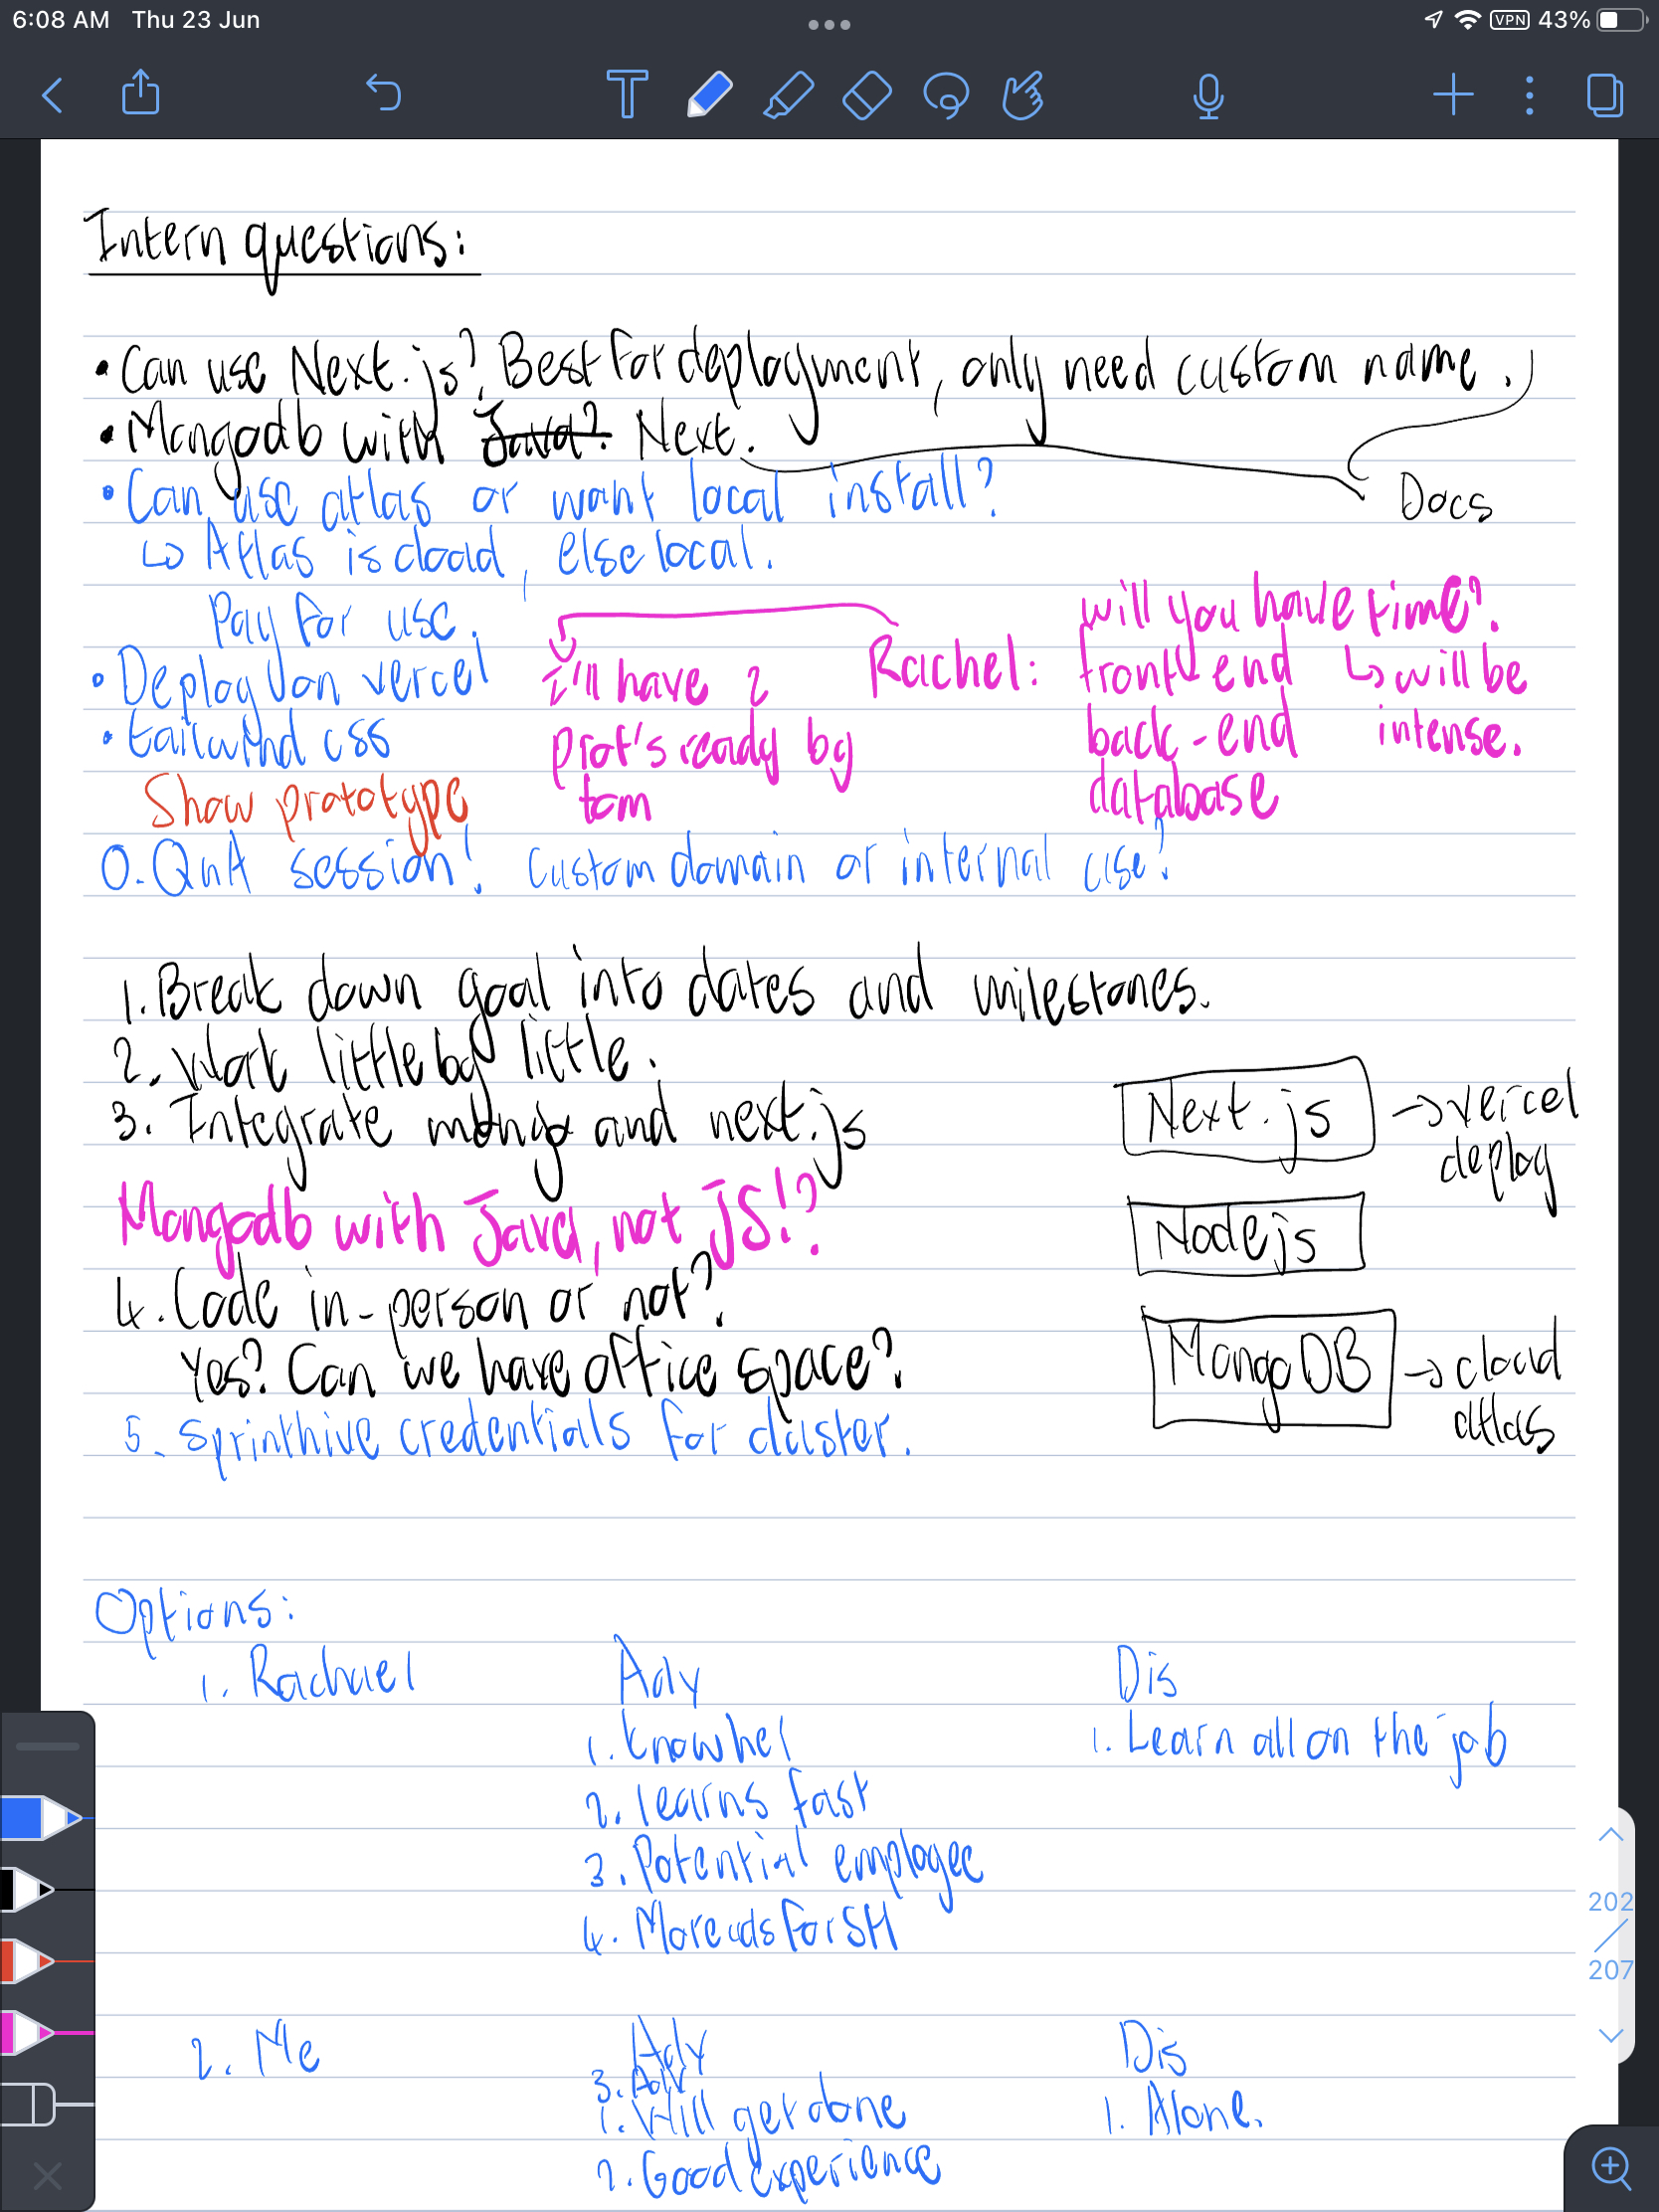 6:08 AM Thu 23 Jun
VPN 43%
Intern questions:
• Can use Next.js? Best for deployment, only need custom name.
• Mongodb with Java? Next.
Docs
• Can use atlas or want local install?
↳ Atlas is cloud, else local.
Pay for use.
• Deploy on vercel
• tailwind css
Show prototype
I'll have 2
prot's ready by
tom
Rachel:
will you have time?
front-end ↳ will be
back-end intense.
database
0. QnA session! Custom domain or internal use?
1. Break down goal into dates and milestones.
2. Work little by little.
3. Integrate mongo and next.js
Mongodb with Java, not JS!?
4. Code in-person or not?
Yes? Can we have office space?
5. Sprinthive credentials for cluster.
Next.js → vercel
deploy
Nodejs
MongoDB → cloud
atlas
Options:
1. Rachael Adv Dis
1. Know her 1. Learn all on the job
2. learns fast
3. Potential employee
4. More ads for SH
2. Me Adv Dis
3. Adv
1. Will get done 1. Alone.
2. Good experience
202
207